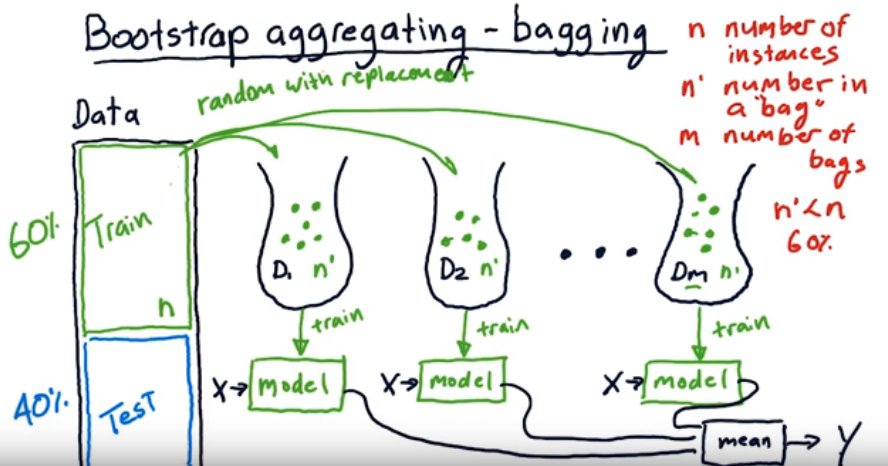 Bootstrap aggregating - bagging
n number of
instances
n' number in
a "bag"
m number of
bags
n'<n
60%
random with replacement
Data
60%
Train
n
40%
Test
D1 n'
D2 n'
• • •
Dm n'
train
train
train
X→ model
X→ model
X→ model
mean → Y